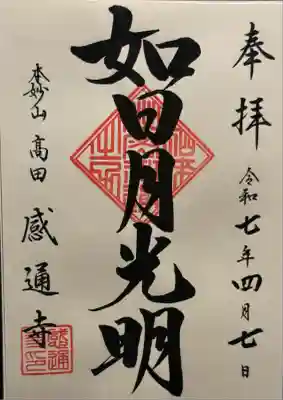 奉拝
令和七年四月七日
如日月光明
本妙山
高田
感通寺